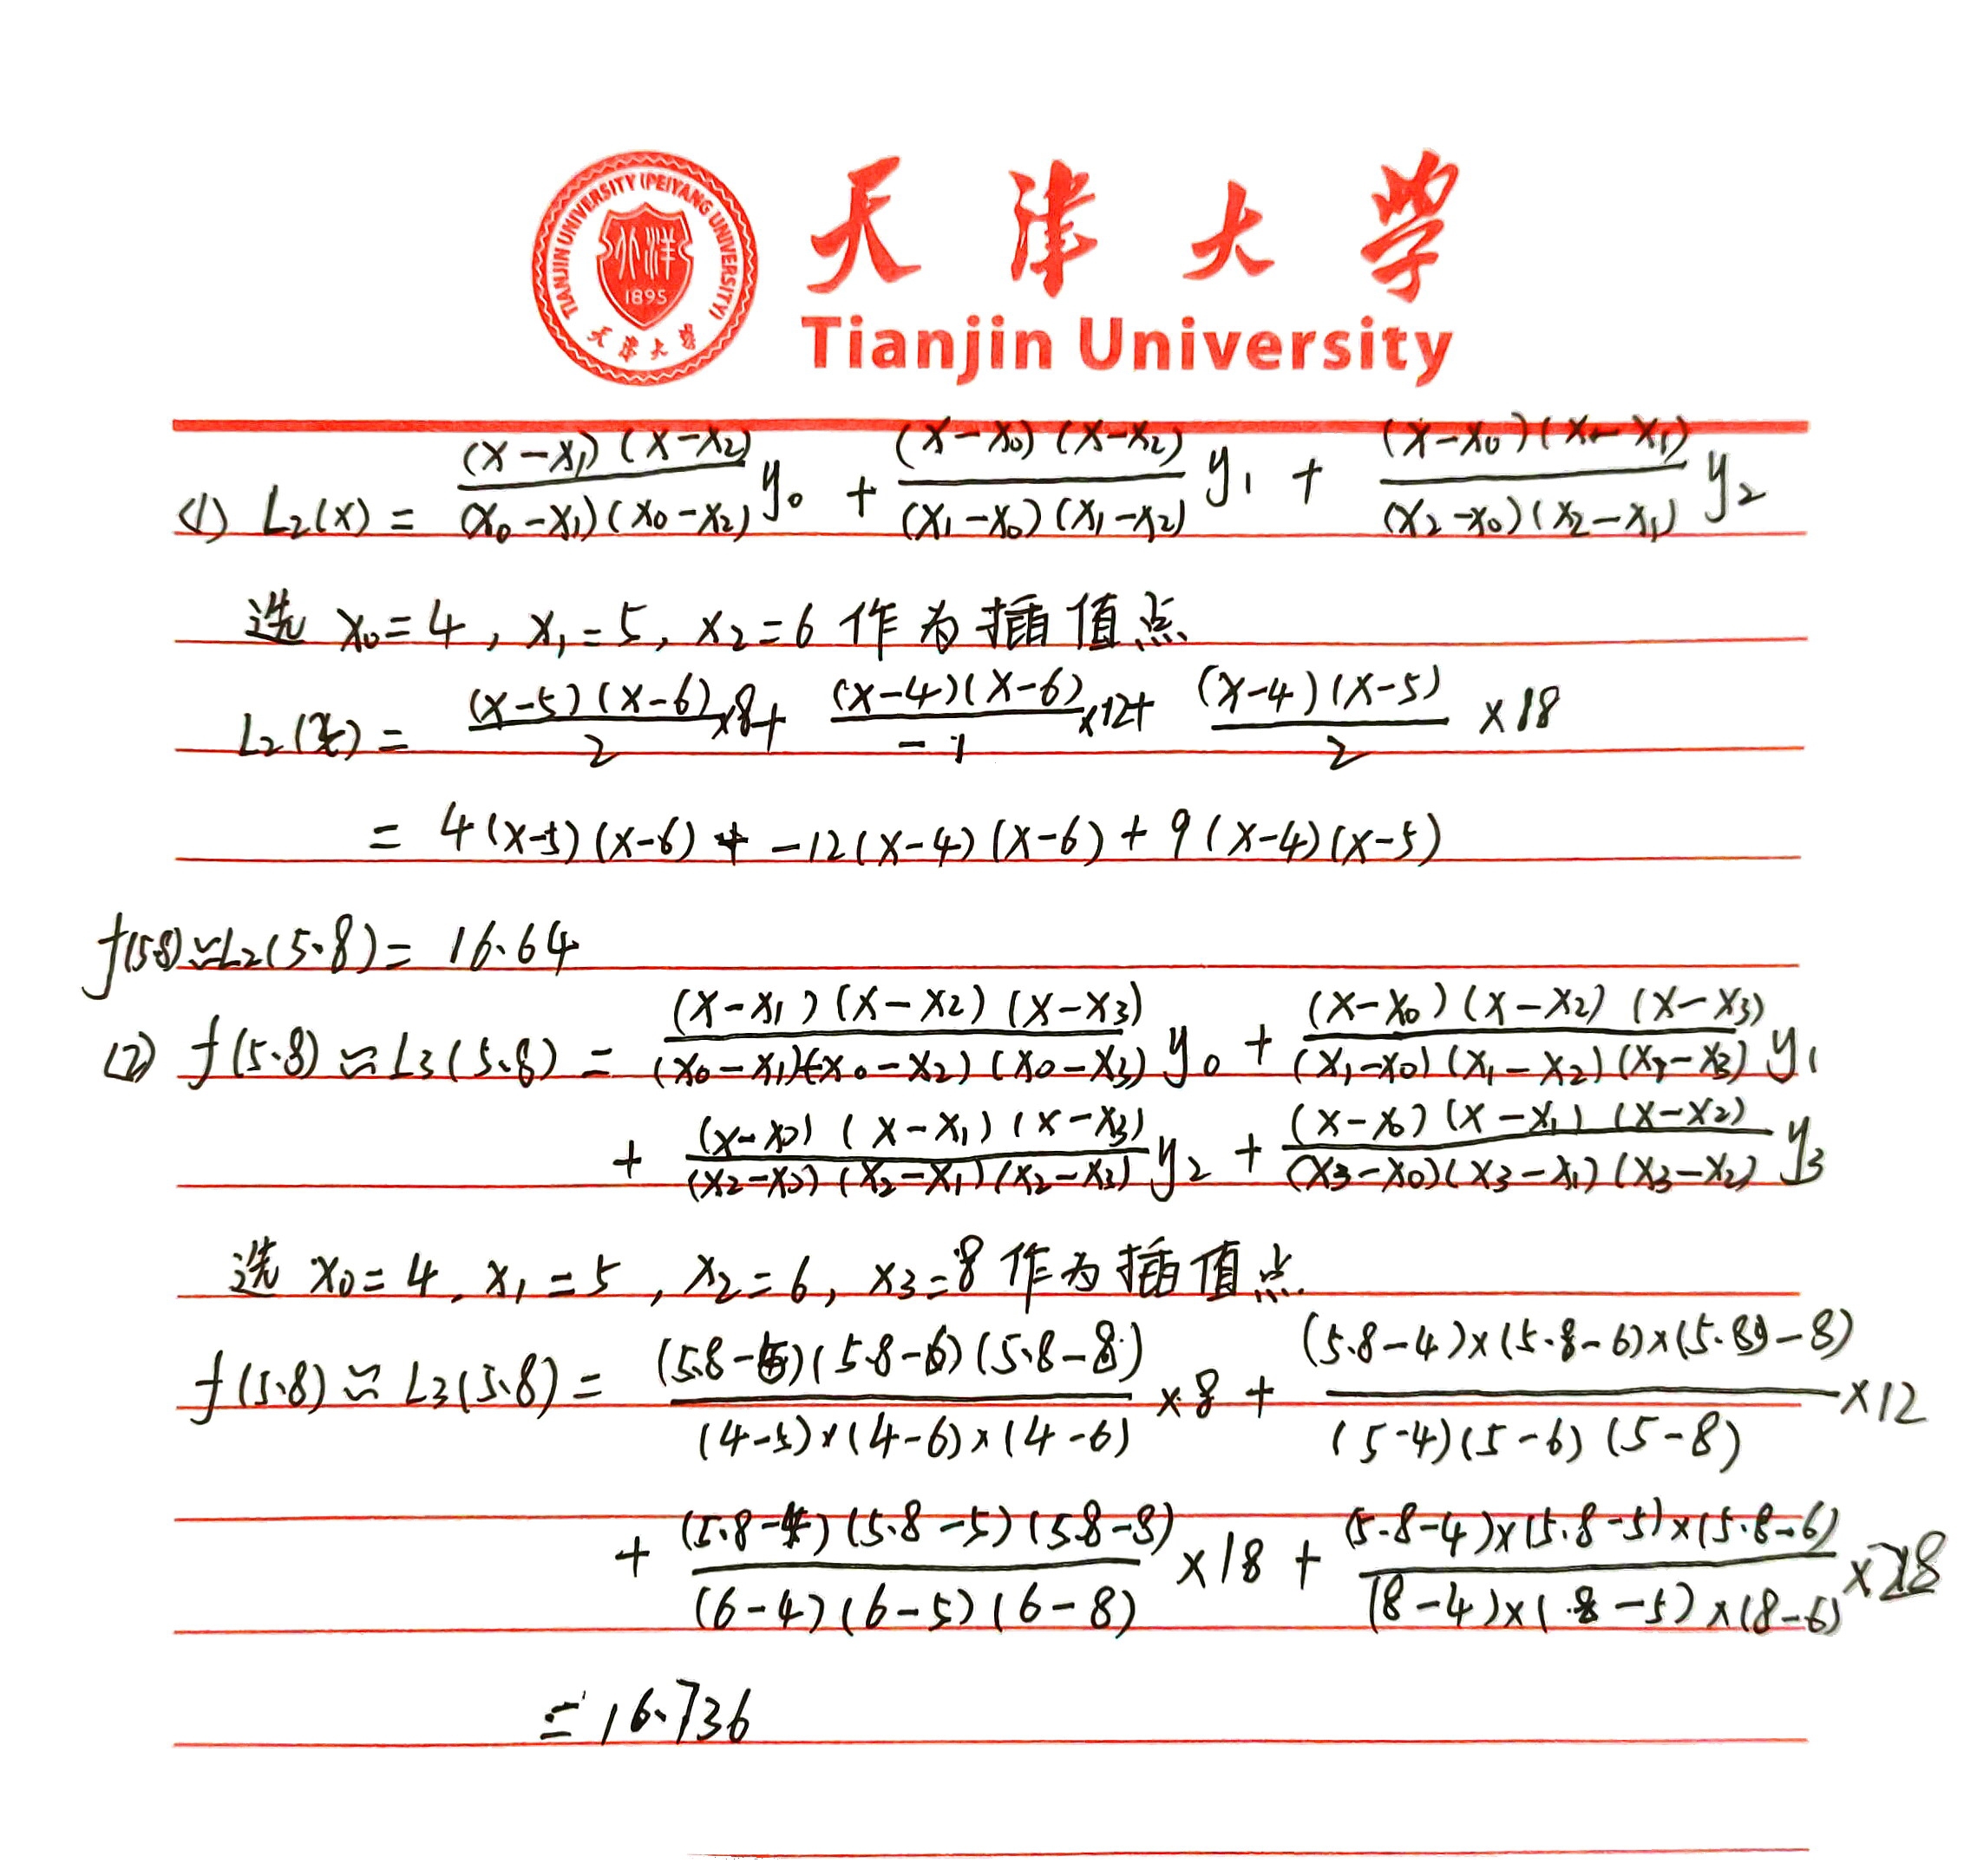 TIANJIN UNIVERSITY (PEIYANG UNIVERSITY)
北洋
1895
天津大學
天津大学
Tianjin University
(1) L₂(x) = \frac{(x-x₁)(x-x₂)}{(x₀-x₁)(x₀-x₂)} y₀ + \frac{(x-x₀)(x-x₂)}{(x₁-x₀)(x₁-x₂)} y₁ + \frac{(x-x₀)(x-x₁)}{(x₂-x₀)(x₂-x₁)} y₂
选 x₀=4, x₁=5, x₂=6 作为插值点
L₂(x) = \frac{(x-5)(x-6)}{2}×8+ \frac{(x-4)(x-6)}{-1}×12+ \frac{(x-4)(x-5)}{2} ×18
= 4(x-5)(x-6) + -12(x-4)(x-6) + 9(x-4)(x-5)
f(5.8)≈L₂(5.8)= 16.64
(2) f(5.8) ≈ L₃(5.8) = \frac{(x-x₁)(x-x₂)(x-x₃)}{(x₀-x₁)(x₀-x₂)(x₀-x₃)} y₀ + \frac{(x-x₀)(x-x₂)(x-x₃)}{(x₁-x₀)(x₁-x₂)(x₁-x₃)} y₁
+ \frac{(x-x₀)(x-x₁)(x-x₃)}{(x₂-x₀)(x₂-x₁)(x₂-x₃)} y₂ + \frac{(x-x₀)(x-x₁)(x-x₂)}{(x₃-x₀)(x₃-x₁)(x₃-x₂)} y₃
选 x₀=4, x₁=5, x₂=6, x₃=8 作为插值点.
f(5.8) ≈ L₃(5.8) = \frac{(5.8-5)(5.8-6)(5.8-8)}{(4-5)×(4-6)×(4-6)} ×8 + \frac{(5.8-4)×(5.8-6)×(5.8-8)}{(5-4)(5-6)(5-8)} ×12
+ \frac{(5.8-4)(5.8-5)(5.8-8)}{(6-4)(6-5)(6-8)} ×18 + \frac{(5.8-4)×(5.8-5)×(5.8-6)}{(8-4)×(8-5)×(8-6)} ×28
= 16.736